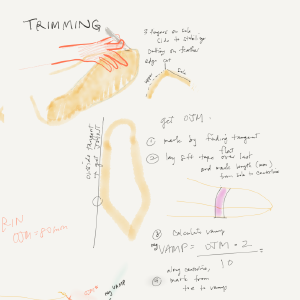 TRIMMING
fingers on sole
side to stabilize
cutting on feather
edge cut
Sole
outside tangent
get OJM.
① mark by finding tangent
flat
② lay soft tape over last
and mark length (mm)
from sole to centerline
③ calculate vamp
VAMP = OJM · 2
10
=
along centerline,
④ mark from
toe to vamp
OJM =
my VAMP